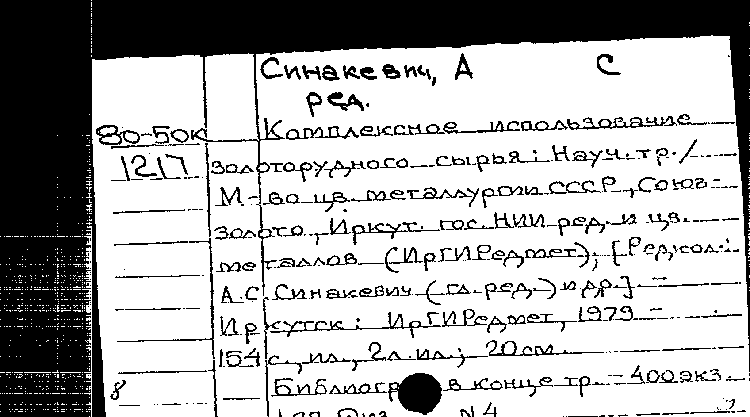 Синакевич, А С
ред.
80-50к Комплексное использование
1217 золоторудного сырья: Науч. тр./
М-во цв. металлургии СССР, Союз-
золото, Иркут. гос. НИИ ред. и цв.
металлов (ИРГИРедмет); [Редкол.:
А.С. Синакевич (гл. ред.) и др.] -
Иркутск: ИРГИРедмет, 1979 -
154 с., ил., 2 л. ил.; 20 см.
8 Библиогр в конце тр. - 400 экз.
N 4